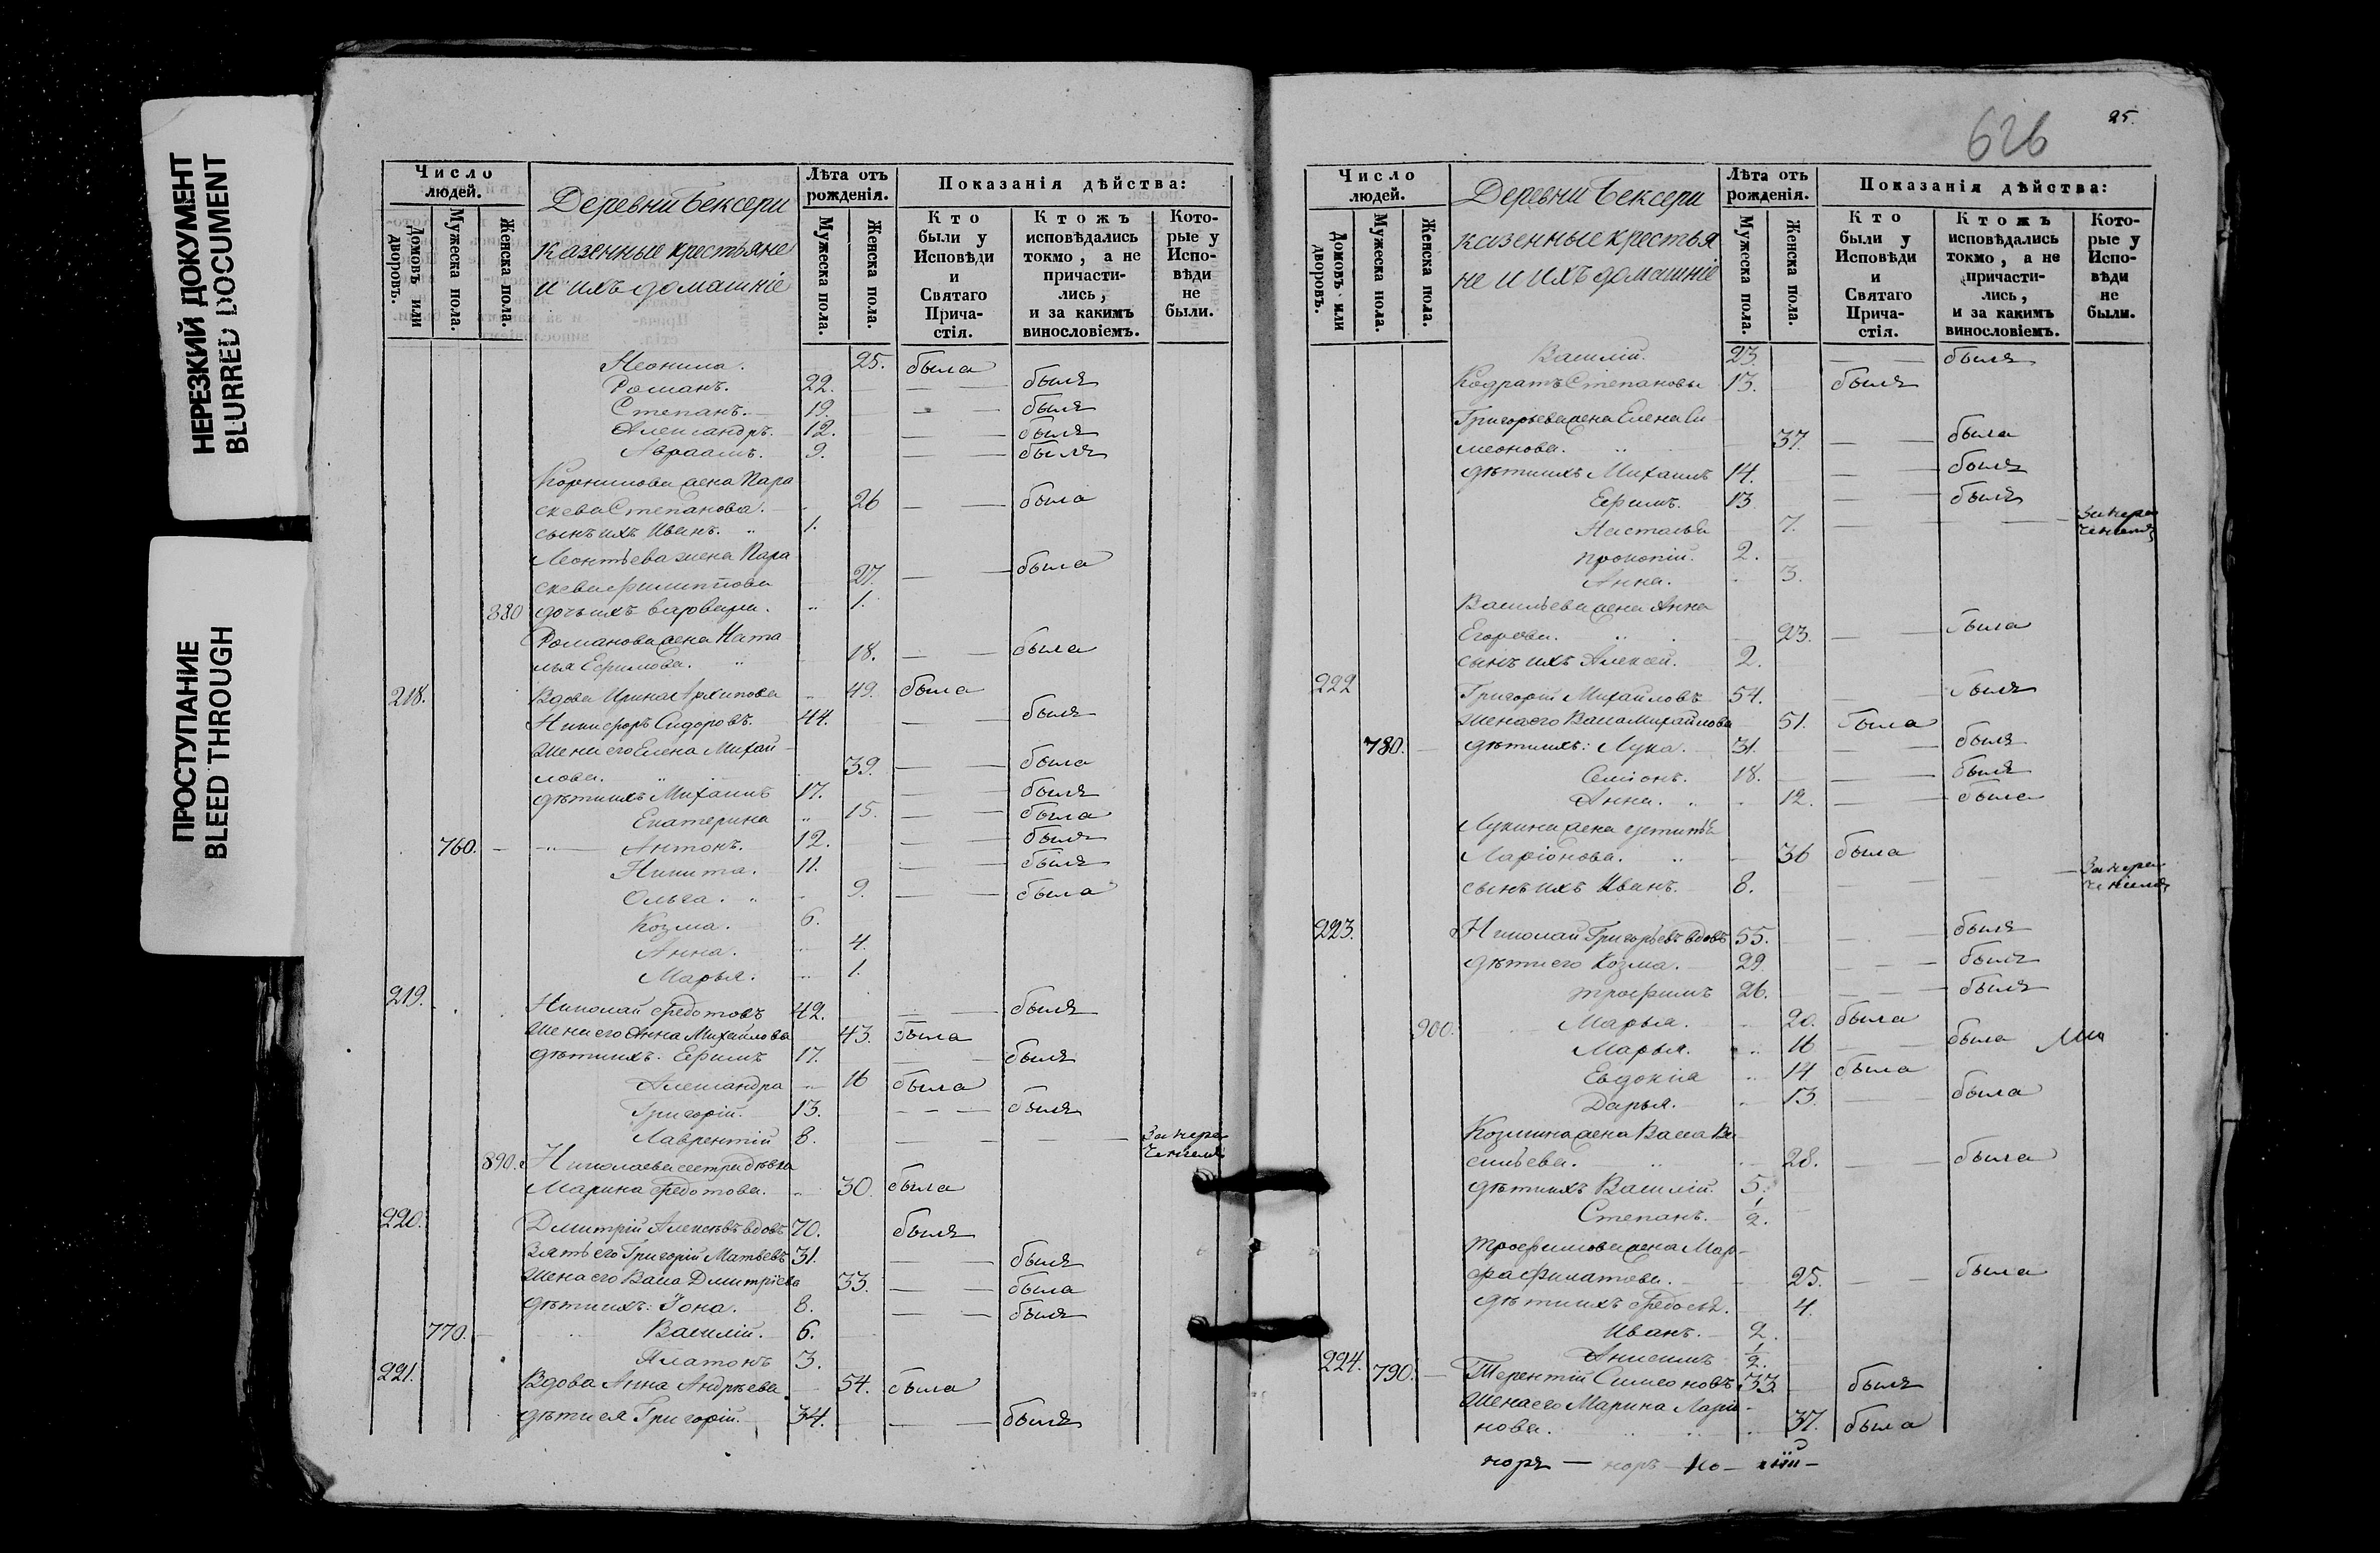 НЕРЕЗКИЙ ДОКУМЕНТ
BLURRED DOCUMENT
ПРОСТУПАНИЕ
BLEED THROUGH
Число людей.
Домовъ или дворовъ.
Мужеска пола.
Женска пола.
Деревни Бексери
казенные крестьяне
и ихъ домашніе
Лѣта отъ рожденія.
Мужеска пола.
Женска пола.
Показанія дѣйства:
Кто были у Исповѣди и Святаго Прича-стія.
Ктожъ исповѣдались токмо, а не причасти-лись, и за какимъ винословіемъ.
Кото-рые у Испо-вѣди не были.
Неонила. 25. была
Романъ. 22. — — былъ
Степанъ. 19. — былъ
Александръ. 12. — — былъ
Авраамъ. 9. — — былъ
Корнилова жена Пара
скева Степанова. 26 — — была
сынъ ихъ Иванъ. 1.
Леонтьева жена Пара
скева Филиппова 27. — — была
880 дочь ихъ Варвара. 1.
Романова жена Ната
лья Ефимова. 18. — — была
218. Вдова Ирина Архипова 49. была
Никифоръ Сидоровъ. 44. — — былъ
Жена его Елена Михай-
лова. 39. — — была
дѣти ихъ Михаилъ 17. — — былъ
Екатерина 15. — — была
760. — Антонъ. 12. — — былъ
Никита. 11. — — былъ
Ольга. 9. — — была
Козма. 6.
Анна. 4.
Марья. 1.
219. Николай Федотовъ 42. — — былъ
Жена его Анна Михайлова 43. была
дѣти ихъ: Ефимъ 17. — — былъ
Александра 16 была
Григорій. 13. — — — былъ
Лаврентій 8. — — — — За нера
ченіемъ
890. Николаева сестра дѣвка
Марина Федотова. 30. была
220. Дмитрій Алексѣевъ вдовъ 70. былъ
Зять его Григорій Матвѣевъ 31. — — былъ
Жена его Васса Дмитріева 33. — — была
дѣти ихъ: Іона. 8. — — былъ
770. — Василій. 6.
Платонъ 3.
221. Вдова Анна Андреева. 54. была
дѣти ея Григорій. 34. — — былъ
626
25.
Число людей.
Домовъ или дворовъ.
Мужеска пола.
Женска пола.
Деревни Бексери
казенные крестья
не и ихъ домашніе
Лѣта отъ рожденія.
Мужеска пола.
Женска пола.
Показанія дѣйства:
Кто были у Исповѣди и Святаго Прича-стія.
Ктожъ исповѣдались токмо, а не причасти-лись, и за какимъ винословіемъ.
Кото-рые у Испо-вѣди не были.
Василій. 23. — — былъ
Кодратъ Степановы 13. былъ
Григорьева жена Елена Си-
меонова. 37. — — была
дѣти ихъ Михаилъ 14. — — былъ
Ефимъ. 13 — — былъ
Настасья 7. — — — — За нера
ченіемъ
Прокопій. 2.
Анна. 3.
Васильева жена Анна
Егорова. 23. — — была
сынъ ихъ Алексѣй. 2.
222 Григорій Михайловъ 54. — — былъ
Жена его Васса Михайлова 51. была
780. — дѣти ихъ: Лука. 31. — — былъ
Семіонъ. 18. — — былъ
Анна. 12. — — была
Лукина жена
Ларіонова. 36 была
сынъ ихъ Иванъ. 8. — — — — За нера
ченіемъ
223. Николай Григорьевъ вдовъ 55. — — былъ
дѣти его Козма. 29. — — — былъ
Трофимъ 26. — — — былъ
900. Марья. 20. была
Марья. 16 — — была
Евдокіа 14 была
Дарья. 13. — — была
Козмина жена Васса Ва-
сильева. 28. — — была
дѣти ихъ Василій. 5.
Степанъ. 1/2.
Трофимова жена Мар-
фа Филатова. 25. — — была
дѣти ихъ Федосья. 4.
Иванъ. 2.
Анисимъ 1/2.
224. 790. — Терентій Симеоновъ 33. былъ
Жена его Марина Ларіо-
нова. 37. была